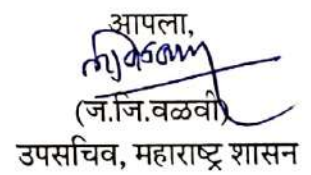 आपला,
(ज.जि.वळवी)
उपसचिव, महाराष्ट्र शासन